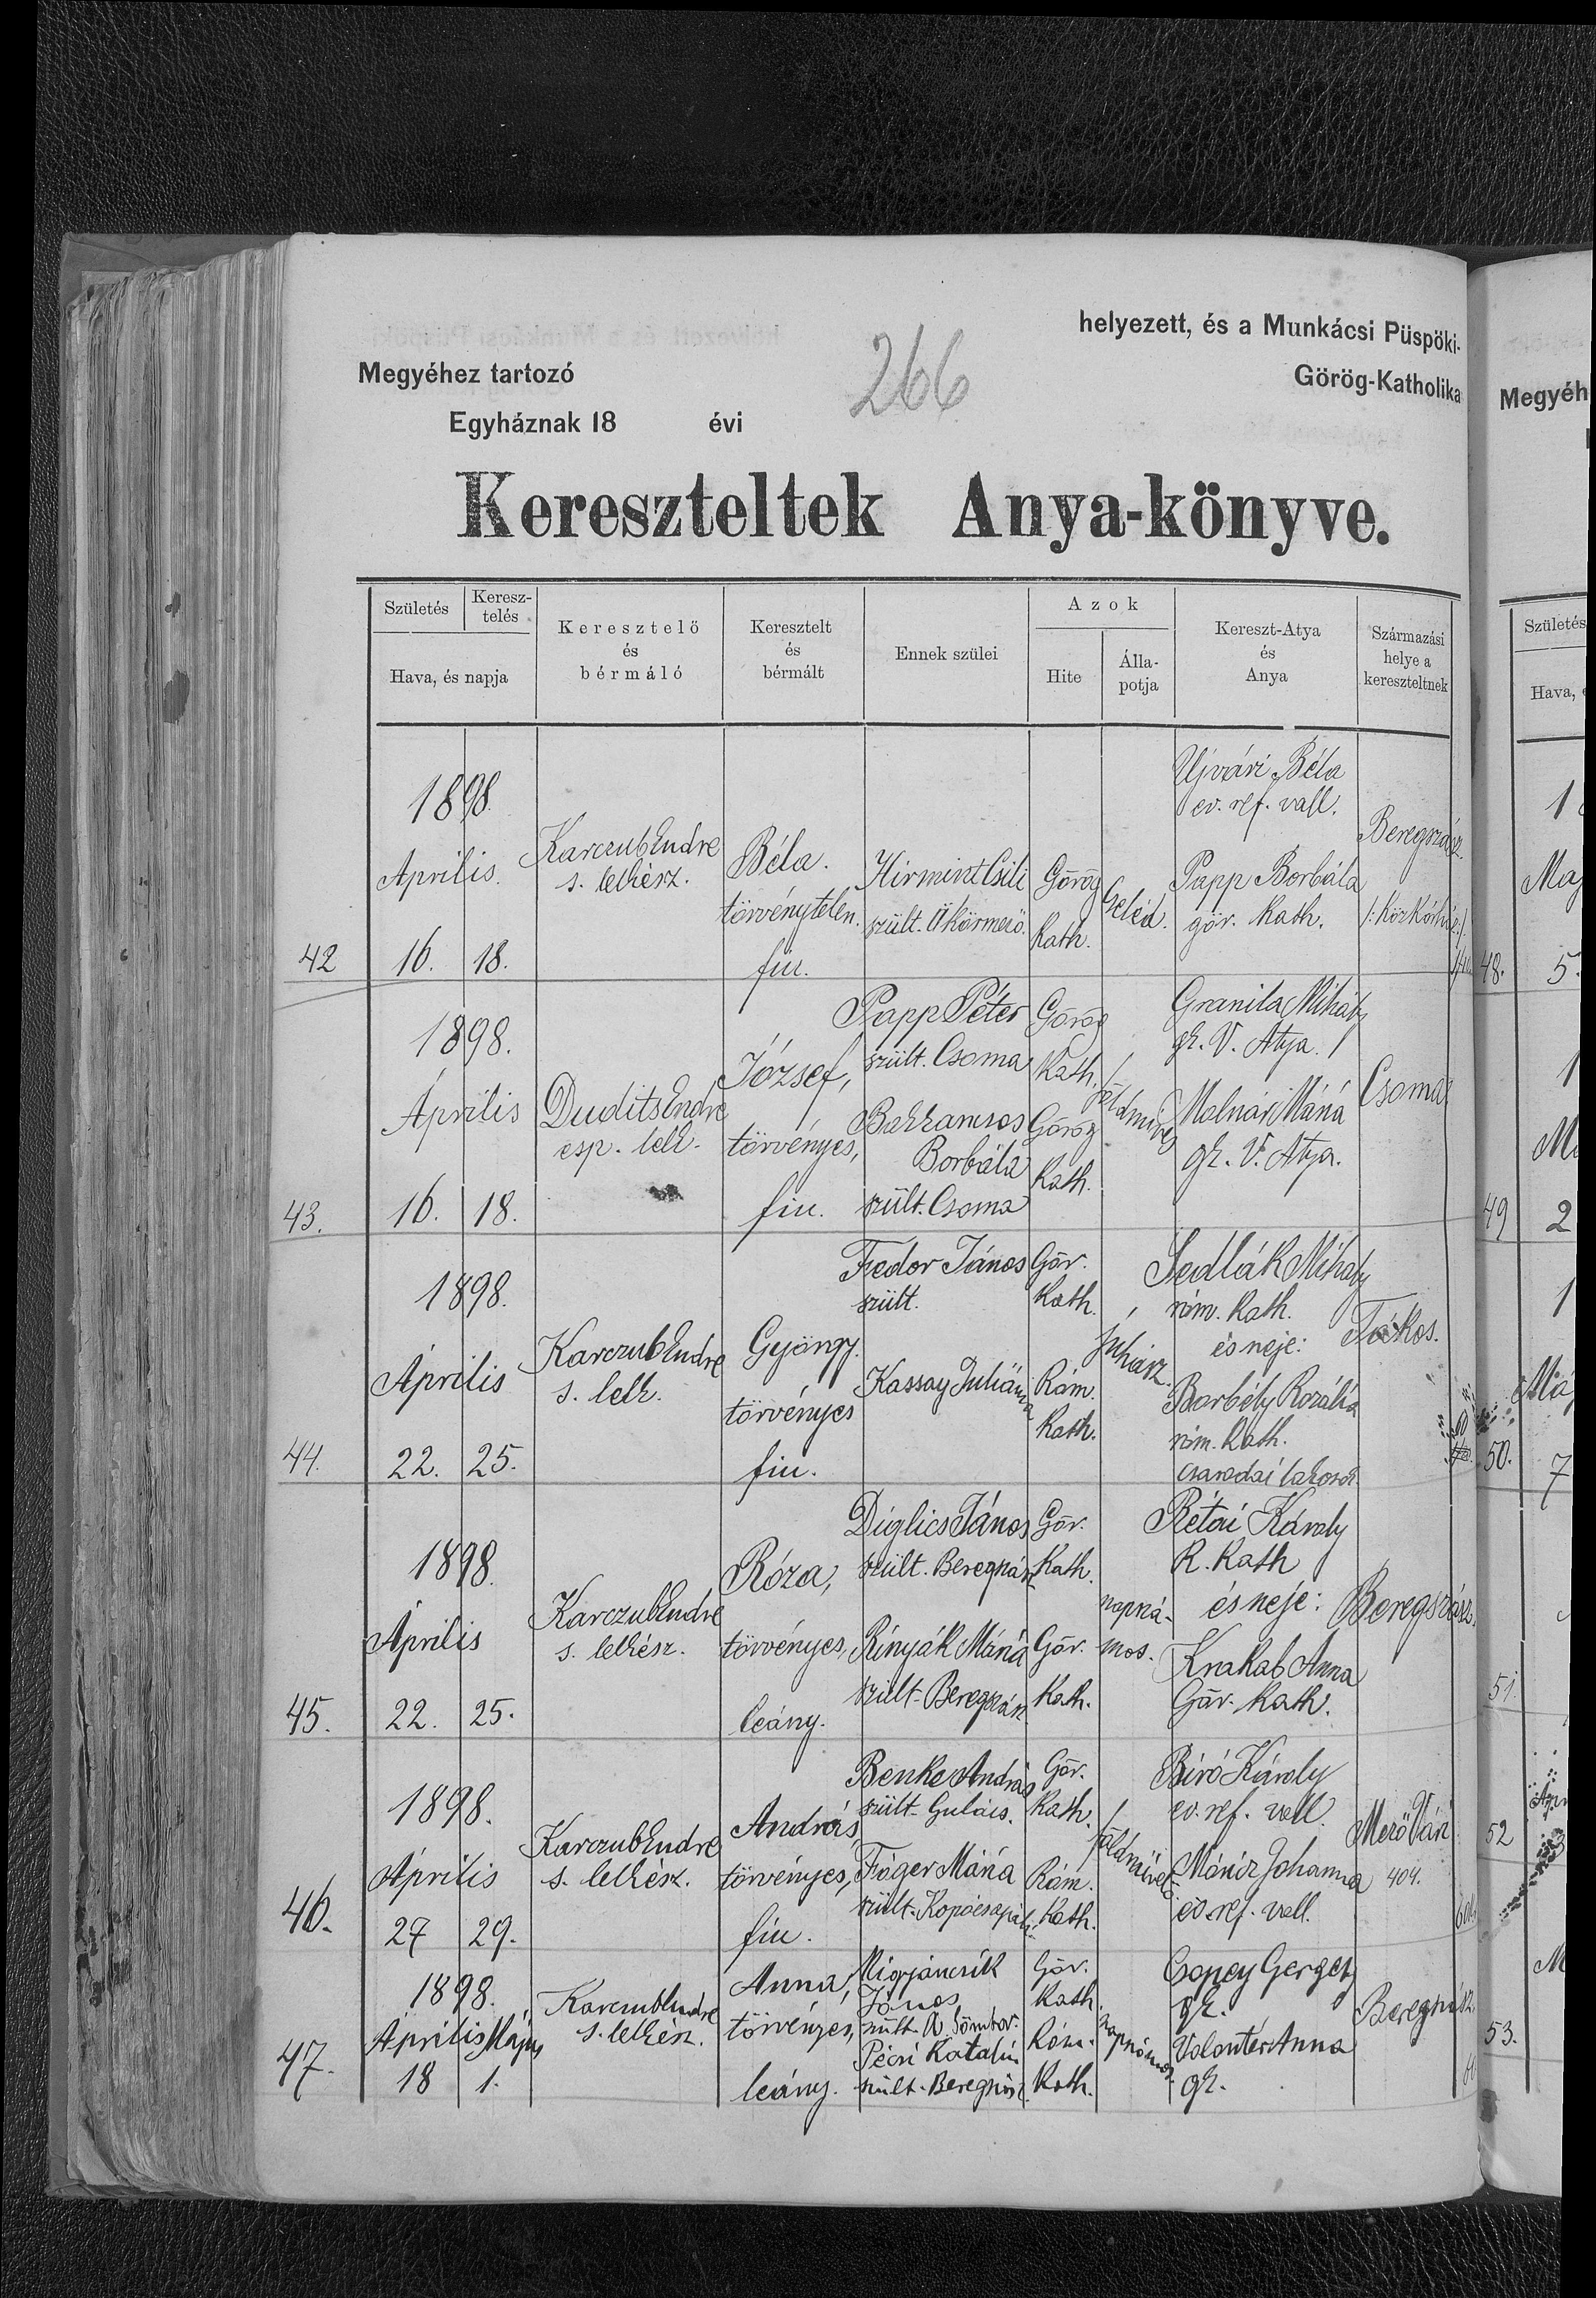 helyezett, és a Munkácsi Püspöki-
Megyéhez tartozó
Görög-Katholika
266
Egyháznak 18 évi
Kereszteltek Anya-könyve.
Születés
Keresz-
telés
Hava, és napja
Keresztelő
és
bérmáló
Keresztelt
és
bérmált
Ennek szülei
Azok
Hite
Álla-
potja
Kereszt-Atya
és
Anya
Származási
helye a
kereszteltnek
42
1898.
Április.
16. 18.
Karczub Endre
s. lelkész.
Béla.
törvénytelen.
fiu.
Hirmint Csili
szült. Ökörmező.
Görög
Kath.
Cseléd.
Ujvári Béla
ev. ref. vall.
Papp Borbála
gör. Kath.
Beregszász.
/:Közkórház:/
43.
1898.
Április
16. 18.
Dudits Endre
esp. lelk.
József,
törvényes,
fiu.
Papp Péter
szült. Csoma
Bakkancsos
Borbála
szült. Csoma
Görög
Kath.
Görög
Kath.
földmives
Granila Mihály
gk. V. Atya.
Molnár Mária
gk. V. Atya.
Csoma
44.
1898.
Április
22. 25.
Karczub Endre
s. lelk.
György.
törvényes
fiu.
Fedor János
szült.
Kassay Juliánna
Gör.
Kath.
Róm.
Kath.
Juhász.
Sedlák Mihály
róm. Kath.
és neje:
Borbély Rozália
róm. Kath.
csarodai lakosok
Tákos.
45.
1898.
Április
22. 25.
Karczub Endre
s. lelkész.
Róza,
törvényes,
leány.
Diglics János
szült. Beregszász
Rényák Mária
szült. Beregszász.
Gör.
Kath.
Gör.
Kath.
napszá-
mos.
Rétai Károly
R. Kath
és neje:
Krakab Anna
Gör. Kath.
Beregszász.
46.
1898.
Április
27 29.
Karczub Endre
s. lelkész.
András
törvényes,
fiu.
Benke András
szült. Gulács.
Fóger Mária
szült. Kopócsapáti.
Gör.
Kath.
Róm.
Kath.
földmivelő
Biró Károly
ev. ref. vall.
Móricz Johanna
ev. ref. vall.
Mező Vári
404.
47.
1898.
Április Május
18 1.
Karczub Endre
s. lelkész.
Anna,
törvényes,
leány.
János
Pécsi Katalin
szült. Beregszász.
Gör.
Kath.
Róm.
Kath.
napszámos.
Csopey Gergely
gk.
Volonter Anna
gk.
Beregszász.
Megyéh
Születés
Hava,
48.
5.
49
2
50.
7
51.
52
53.